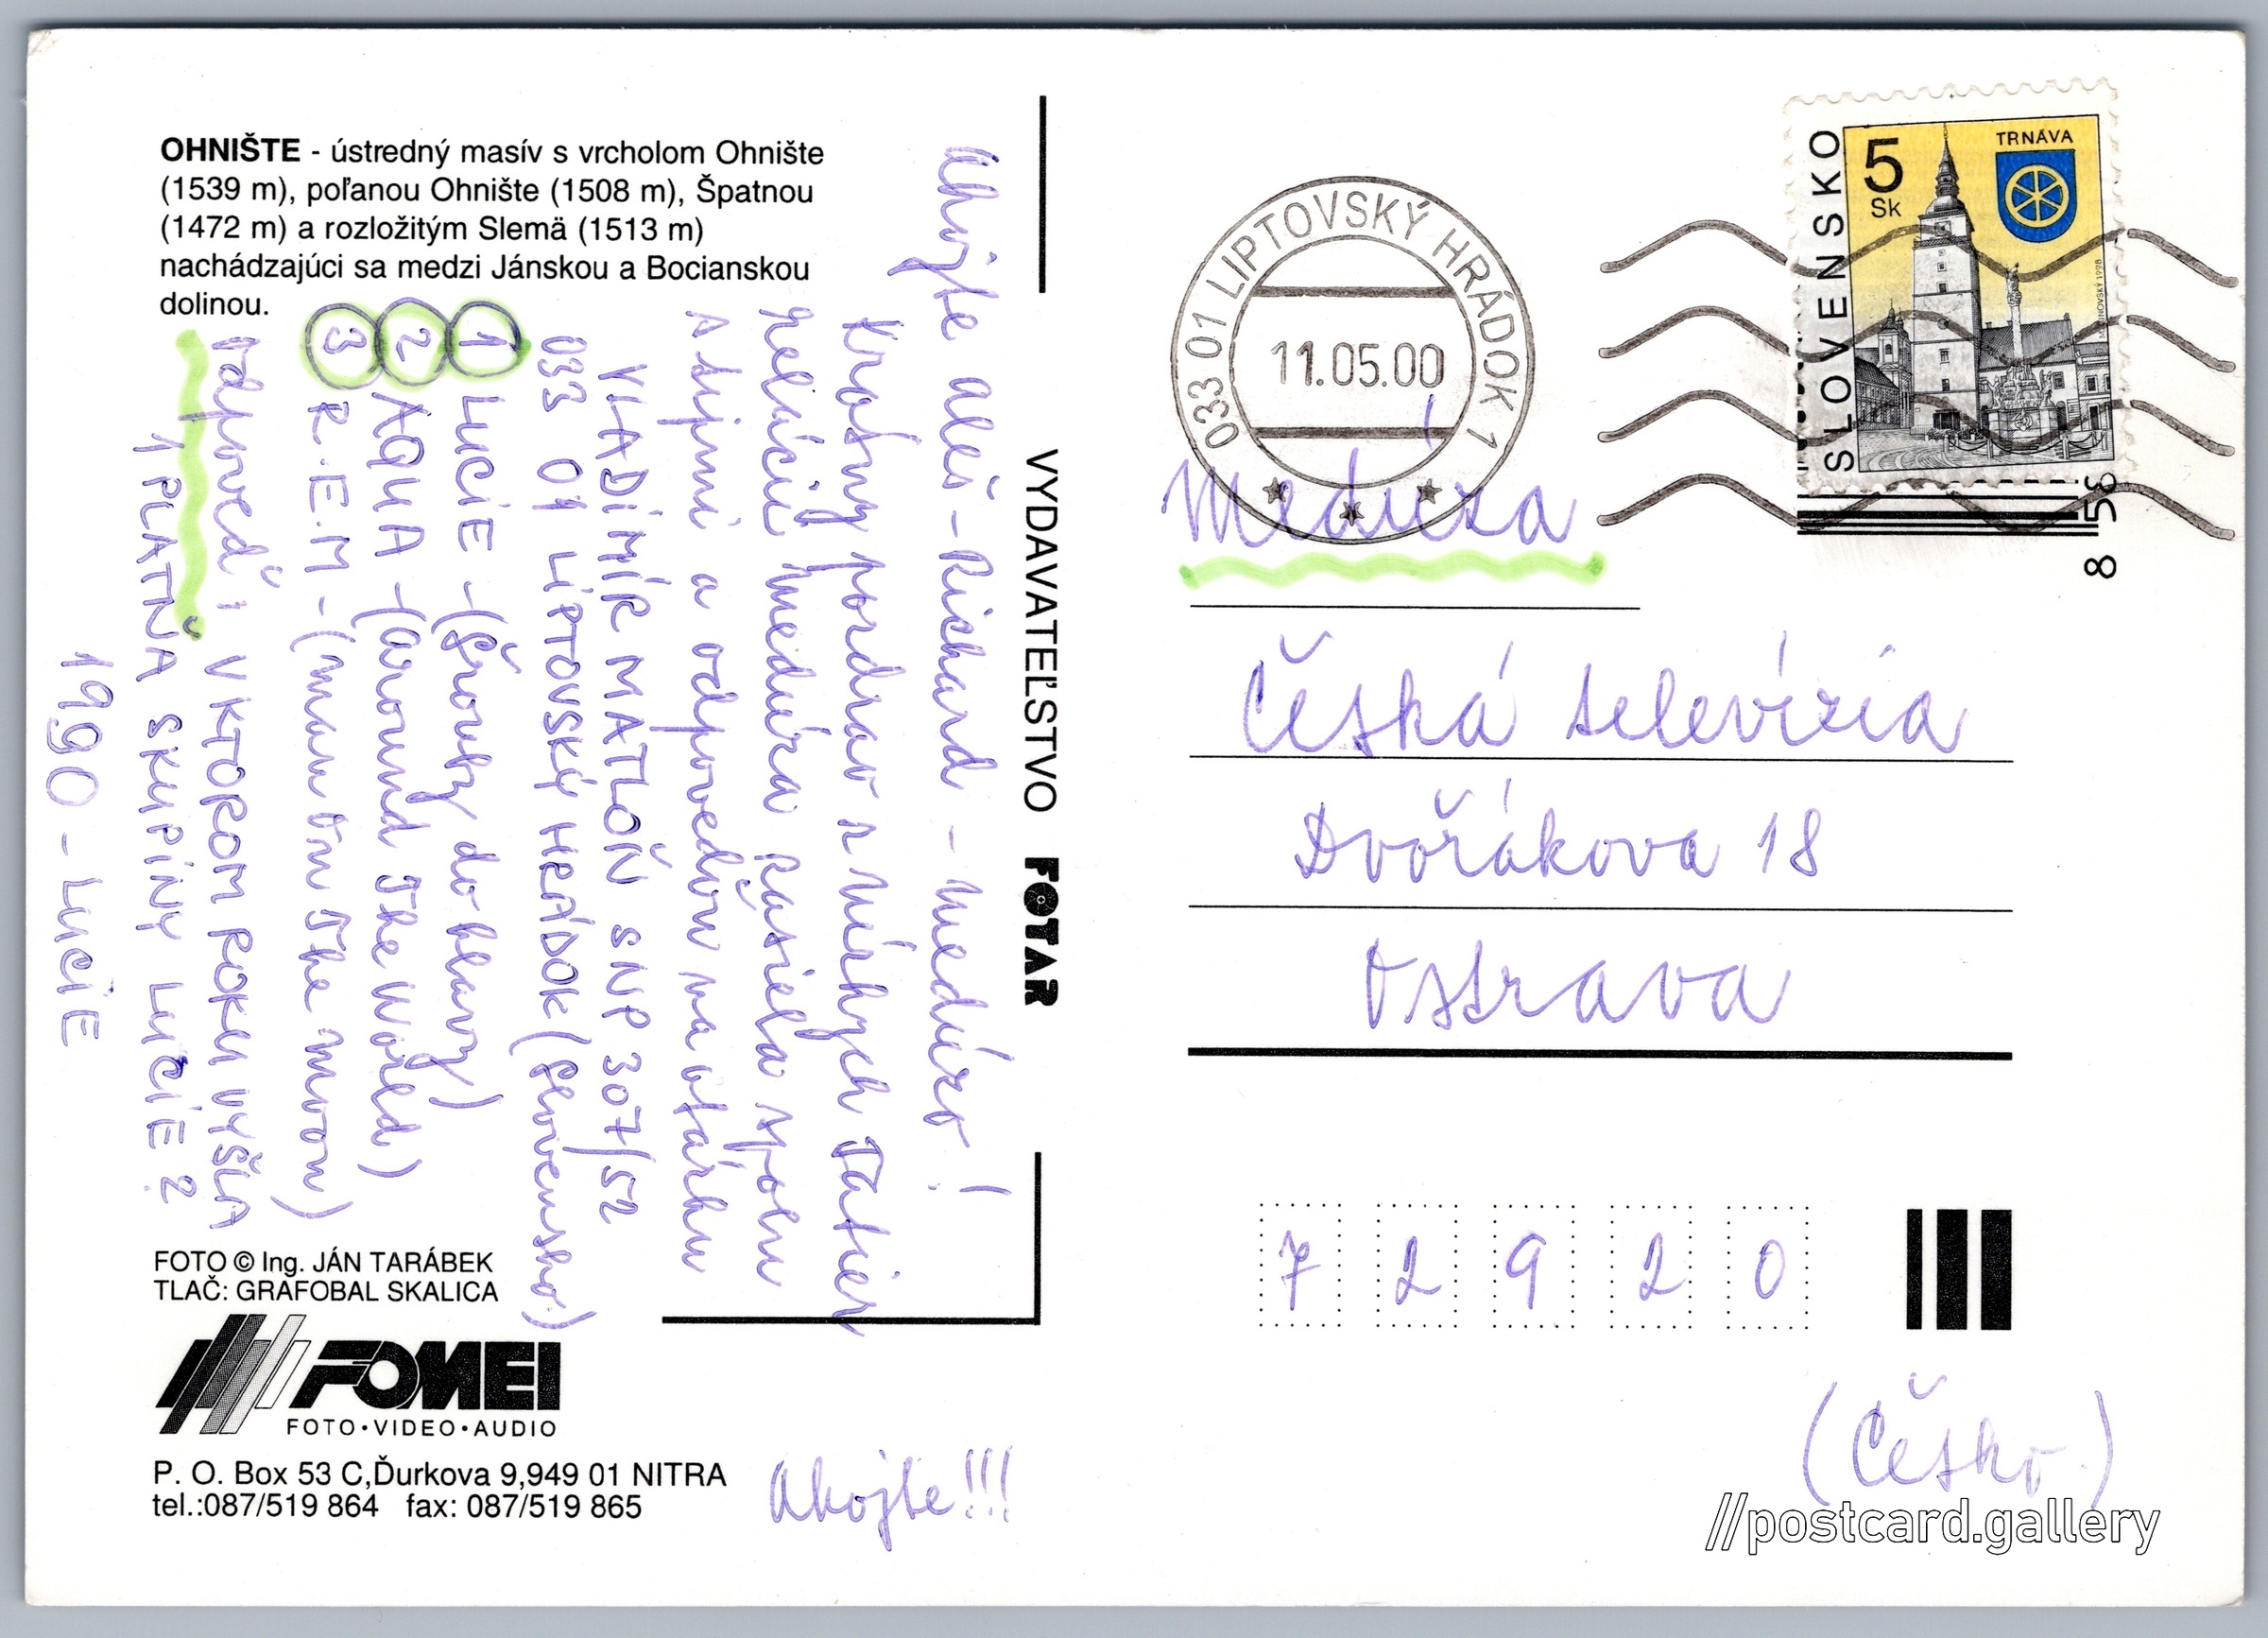 OHNIŠTE - ústredný masív s vrcholom Ohnište
(1539 m), poľanou Ohnište (1508 m), Špatnou
(1472 m) a rozložitým Slemä (1513 m)
nachádzajúci sa medzi Jánskou a Bocianskou
dolinou.
Ahojte aleš - Richard - medúzo!
Krásny pozdrav z Nízkych Tatier
relácii medúza zasiela spolu
s tipmi a odpoveďou na otázku
VLADIMÍR MATLOŇ SNP 307/52
033 01 LIPTOVSKÝ HRÁDOK (Slovensko)
1 LUCIE - (Šrouby do hlavy)
2 AQUA - (Around The World)
3 R.E.M - (man on The moon)
odpoveď: V KTOROM ROKU VYŠLA
1, PLATŇA SKUPINY LUCIE?
1990 - LUCIE
FOTO © Ing. JÁN TARÁBEK
TLAČ: GRAFOBAL SKALICA
FOMEI
FOTO•VIDEO•AUDIO
P. O. Box 53 C,Ďurkova 9,949 01 NITRA
tel.:087/519 864 fax: 087/519 865
Ahojte!!!
VYDAVATEĽSTVO FOTAR
033 01 LIPTOVSKÝ HRÁDOK 1
11.05.00
SLOVENSKO
5
Sk
TRNAVA
8 53
Medúza
Česká televízia
Dvořákova 18
Ostrava
7 2 9 2 0
(Česko)
//postcard.gallery